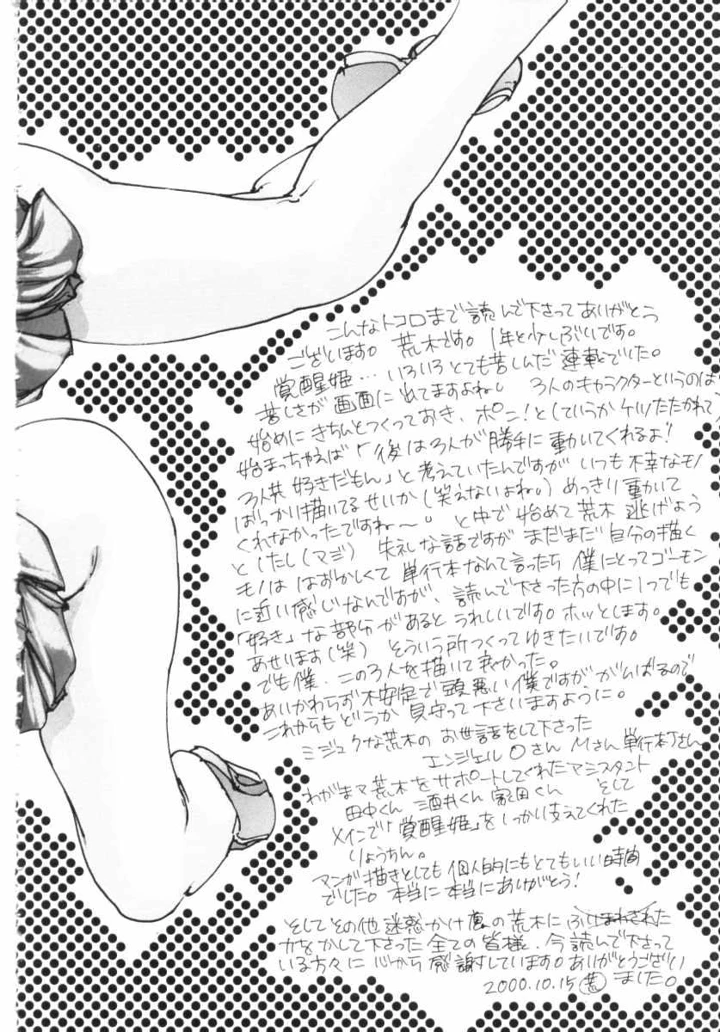 こんなトコロまで読んで下さってありがとう
ございます。荒木です。1年と少しぶりです。
覚醒姫…いろいろとても苦しんだ連載でした。
苦しさが画面に出てますよね。3人のキャラクターというのは
始めにきちんとつくっておき、ポン!としていうかケツたたかれて
始まっちゃえば「後は3人が勝手に動いてくれるよ!
3人共好きだもん」と考えていたんですがいつも不幸なモノ
ばっかり描いてるせいか(笑えないよね。)めっきり動いて
くれなかったですね〜。と中で始めて荒木逃げよう
としたし(マジ)失礼な話ですがまだまだ自分の描く
モノははずかしくて単行本なんて言ったら僕にとってゴーモン
に近い感じなんですが、読んで下さった方の中に1つでも
「好き」な部分があるとうれしいです。ホッとします。
あせいます(笑)そういう所つくってゆきたいです。
でも僕、この3人を描いて良かった。
あいかわらず不安定で頭悪い僕ですががんばるので
これからもどうか見守って下さいますように。
ミジュクな荒木のお世話をして下さった
エンジェルOさんMさん単行本Jさん
わがまマ荒木をサポートしてくれたアシスタント
田中くん酒井くん くんそして
メインで「覚醒姫」をしっかり支えてくれた
りょうちん。
マンガ描きとしても個人的にもとてもいい時間
でした。本当に本当にありがとう!
そしてその他迷惑かけ の荒木にふりまわされた
力をかして下さった全ての皆様、今読んで下さって
いる方々に心から感謝しています。ありがとうござい
2000.10.15 ました。